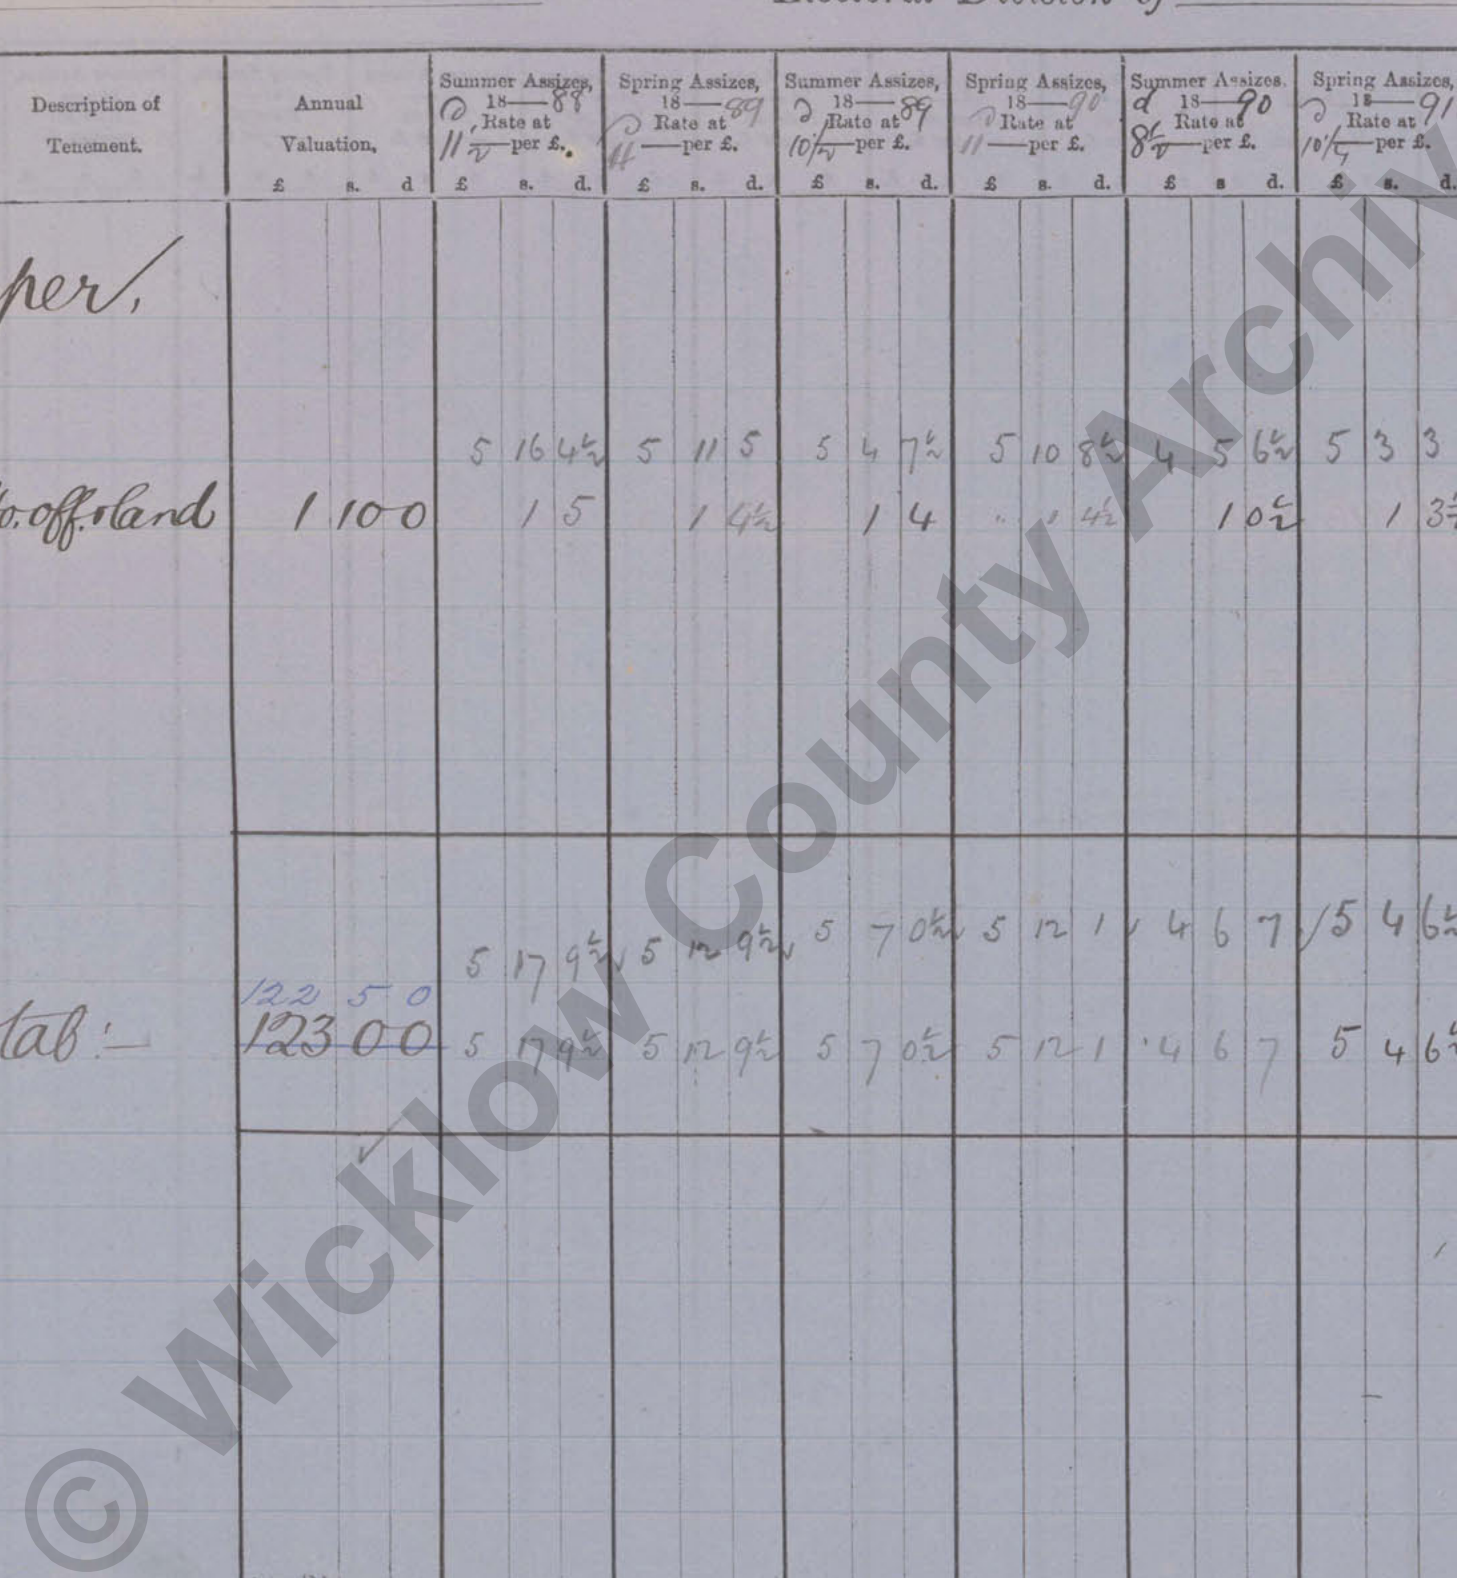 Electoral Division of
Description of Tenement. Annual Valuation, Summer Assizes, 18—88 Rate at 11½ d per £. Spring Assizes, 18—89 Rate at 11 d per £. Summer Assizes, 18—89 Rate at 10½ d per £. Spring Assizes, 18—90 Rate at 11 d per £. Summer Assizes. 18—90 Rate at 8½ d per £. Spring Assizes, 18—91 Rate at 10¼ d per £.
£ s. d £ s. d. £ s. d. £ s. d. £ s. d. £ s d. £ s. d.
per,
5 16 4½ 5 11 5 5 4 7½ 5 10 8½ 4 5 6½ 5 3 3
o. off. & land 1 10 0 1 5 1 4½ 1 4 " 1 4½ 1 0½ 1 3½
5 17 9½ 5 12 9½ 5 7 0½ 5 12 1 4 6 7 5 4 6½
122 5 0
tal:— 123 0 0 5 17 9½ 5 12 9½ 5 7 0½ 5 12 1 4 6 7 5 4 6½
© Wicklow County Archiv